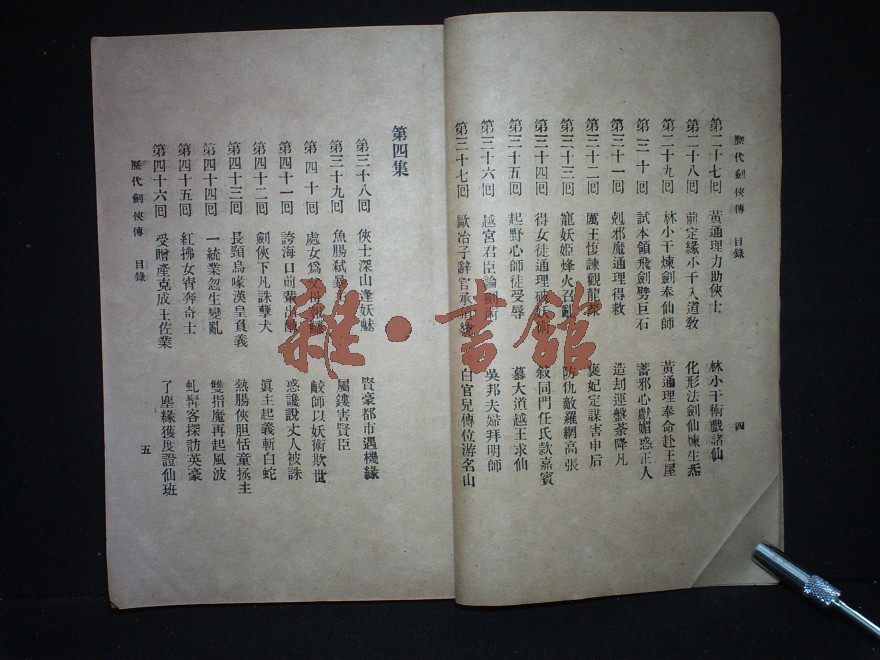 歷代劍俠傳　目錄　四
第二十七回　黃通理力助俠士　林小干術戲諸仙
第二十八回　前定緣小干入道敎　化形法劍仙煉生炁
第二十九回　林小干煉劍奉仙師　黃通理奉命赴王屋
第三十回　試本領飛劍劈巨石　蓄邪心獻媚惑正人
第三十一回　剋邪魔通理得救　造却運盤荼降凡
第三十二回　厲王愎諫觀龍漦　褒妃定謀害申后
第三十三回　寵妖姬烽火召亂　防仇敵羅網高張
第三十四回　得女徒通理破妖術　敍同門任氏款嘉賓
第三十五回　起野心師徒受辱　慕大道越王求仙
第三十六回　越宮君臣論劍術　吳邦夫婦拜明師
第三十七回　歐冶子辭官承　白官兒傳位游名山
第四集
第三十八回　俠士深山逢妖魅　賢豪都市遇機緣
第三十九回　魚腸弒暴　屬鏤害賢臣
第四十回　處女爲父母　敲師以妖術欺世
第四十一回　誇海口前輩出　惑讒說丈人被誅
第四十二回　劍俠下凡誅孽犬　眞主起義斬白蛇
第四十三回　長頸鳥喙漢皇負義　熱腸俠胆恬童拯主
第四十四回　一統業忽生變亂　雙指魔再起風波
第四十五回　紅拂女宵奔奇士　虬髯客探訪英豪
第四十六回　受贈產克成王佐業　了塵緣獲度證仙班
歷代劍俠傳　目錄　五
雜·書館